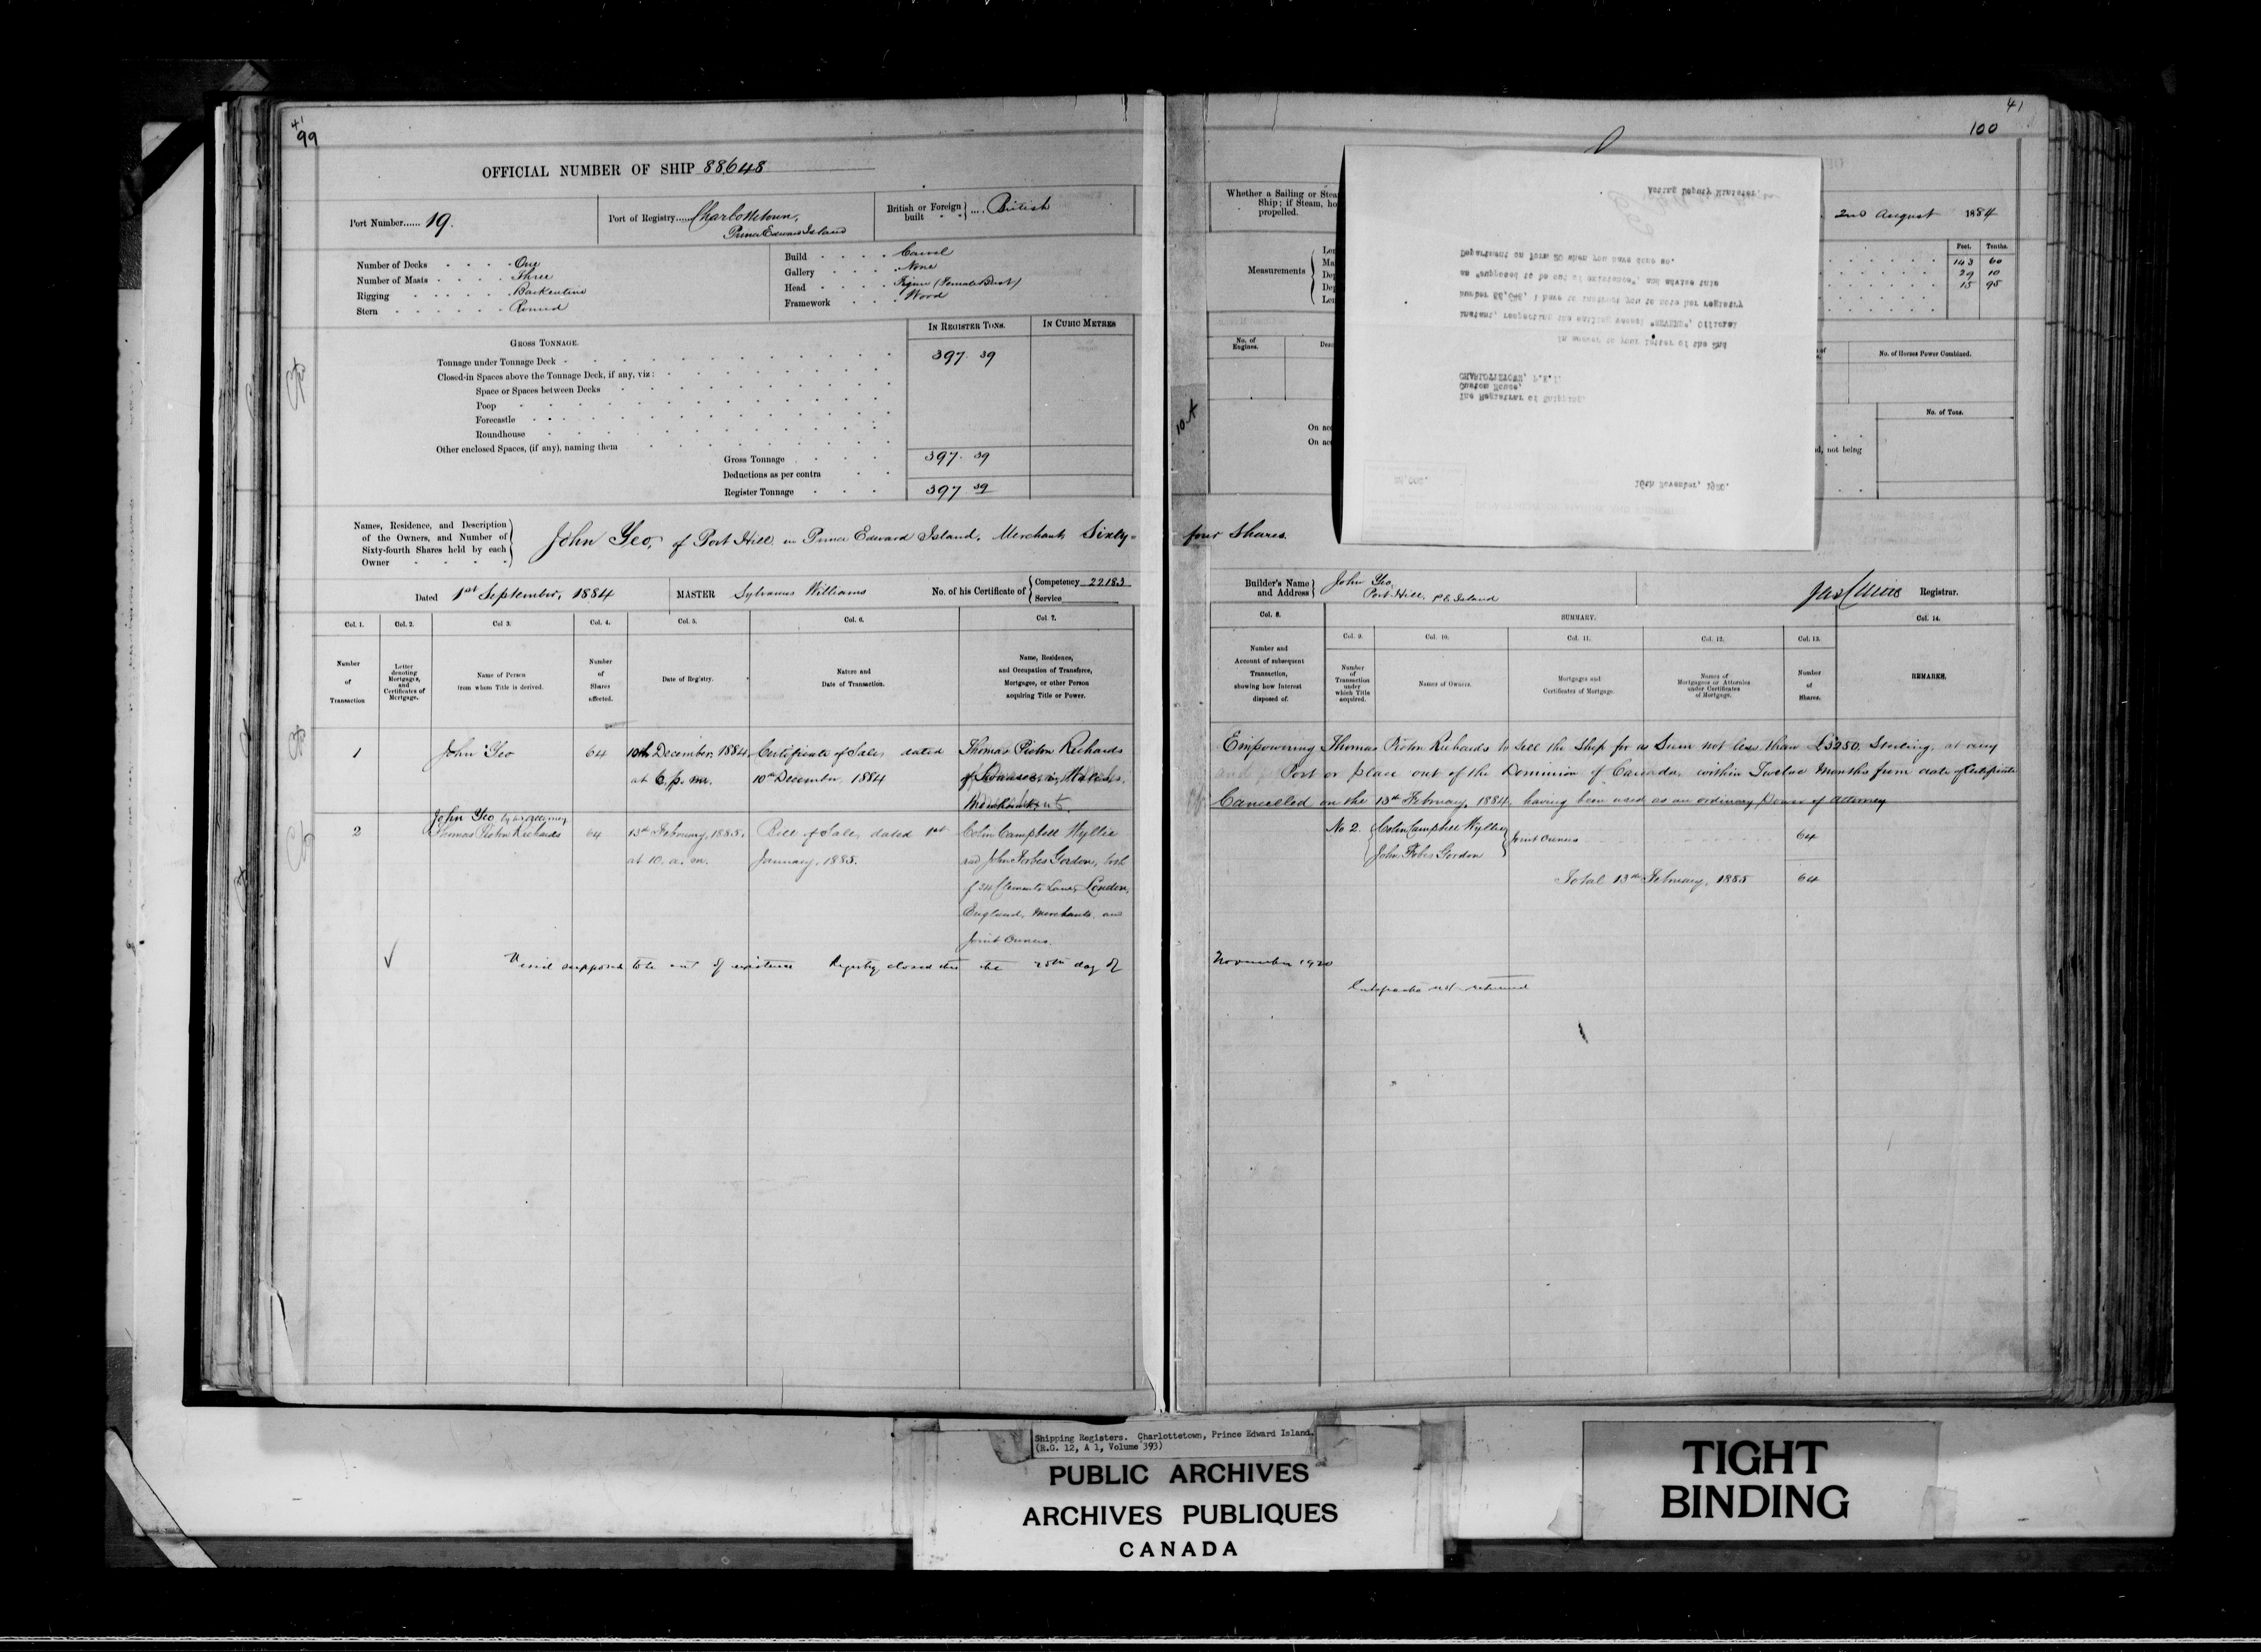 41
99
OFFICIAL NUMBER OF SHIP 88648
Port Number...... 19.
Port of Registry..... Charlottetown,
Prince Edward Island
British or Foreign built .... British
Number of Decks One
Number of Masts Three
Rigging Barkentine
Stern Round
Build Carvel
Gallery None
Head Figure (Female Bust)
Framework Wood
IN REGISTER TONS. IN CUBIC METRES
GROSS TONNAGE.
Tonnage under Tonnage Deck 397. 39
Closed-in Spaces above the Tonnage Deck, if any, viz:
Space or Spaces between Decks
Poop
Forecastle
Roundhouse
Other enclosed Spaces, (if any), naming them
Gross Tonnage 397. 39
Deductions as per contra
Register Tonnage 397 39
Names, Residence, and Description
of the Owners, and Number of
Sixty-fourth Shares held by each
Owner
John Yeo, of Port Hill in Prince Edward Island, Merchant Sixty-
Dated 1st September, 1884 MASTER Sylvanus Williams No. of his Certificate of Competency 22183
Service
Col. 1. Col. 2. Col 3. Col. 4. Col. 5. Col. 6. Col. 7.
Number of Transaction
Letter denoting Mortgages, and Certificates of Mortgage.
Name of Person from whom Title is derived.
Number of Shares affected.
Date of Registry.
Nature and Date of Transaction.
Name, Residence, and Occupation of Transferee, Mortgagee, or other Person acquiring Title or Power.
1 John Yeo 64 10th December, 1884 Certificate of Sale, dated Thomas Picton Richards
at 6. p. m. 10th December 1884 of Swansea, in Wales,
Merchant.
John Yeo by his attorney
2 Thomas Picton Richards 64 13th February, 1885, Bill of Sale, dated 1st Colin Campbell Wyllie
at 10. a. m. January, 1885. and John Forbes Gordon, both
of 34 Clements Lane, London,
England, Merchants and
Joint Owners.
Vessel supposed to be out of existence Registry closed this the 25th day of
41
100
Whether a Sailing or Stea
Ship; if Steam, ho
propelled.
2nd August 1884
Measurements
Feet. Tenths.
143 60
29 10
15 95
No. of Engines.
No. of Horses Power Combined.
No. of Tons.
On acc
On acc
d, not being
10.A
Acting Deputy Minister.
Department on Form 20 when you have done so.
as "supposed to be out of existence", and advise this
number 88,648, I have to instruct you to note her registry
instant, respecting the sailing vessel "REVERE", Official
In answer to your letter of the 2nd
CHARLOTTETOWN, P.E.I.
Custom House,
The Registrar of Shipping,
16th November, 1920.
four Shares.
Builder's Name and Address John Yeo,
Port Hill, P E Island
Registrar.
Col. 8. SUMMARY. Col. 14.
Col. 9. Col. 10. Col. 11. Col. 12. Col. 13.
Number and Account of subsequent Transaction, showing how Interest disposed of.
Number of Transaction under which Title acquired.
Names of Owners.
Mortgages and Certificates of Mortgage.
Names of Mortgagees or Attornies under Certificates of Mortgage.
Number of Shares.
REMARKS.
Empowering Thomas Picton Richards to sell the Ship for a Sum not less than £3250, Sterling, at any
Port or place out of the Dominion of Canada, within Twelve Months from date of Certificate
Cancelled on the 13th February, 1884, having been used as an ordinary Power of Attorney
No 2. Colin Campbell Wyllie Joint Owners 64
John Forbes Gordon
Total 13th February, 1885 64
November 1920
Certificate not returned
Shipping Registers. Charlottetown, Prince Edward Island.
(R.G. 12, A 1, Volume 393)
PUBLIC ARCHIVES
ARCHIVES PUBLIQUES
CANADA
TIGHT
BINDING